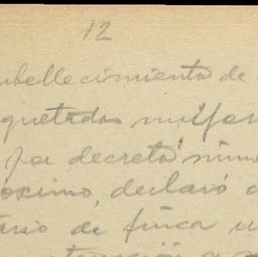 12
mbellecimiento de
quetadas unifor
por decreto núme
óximo, declaró
ario de finca u